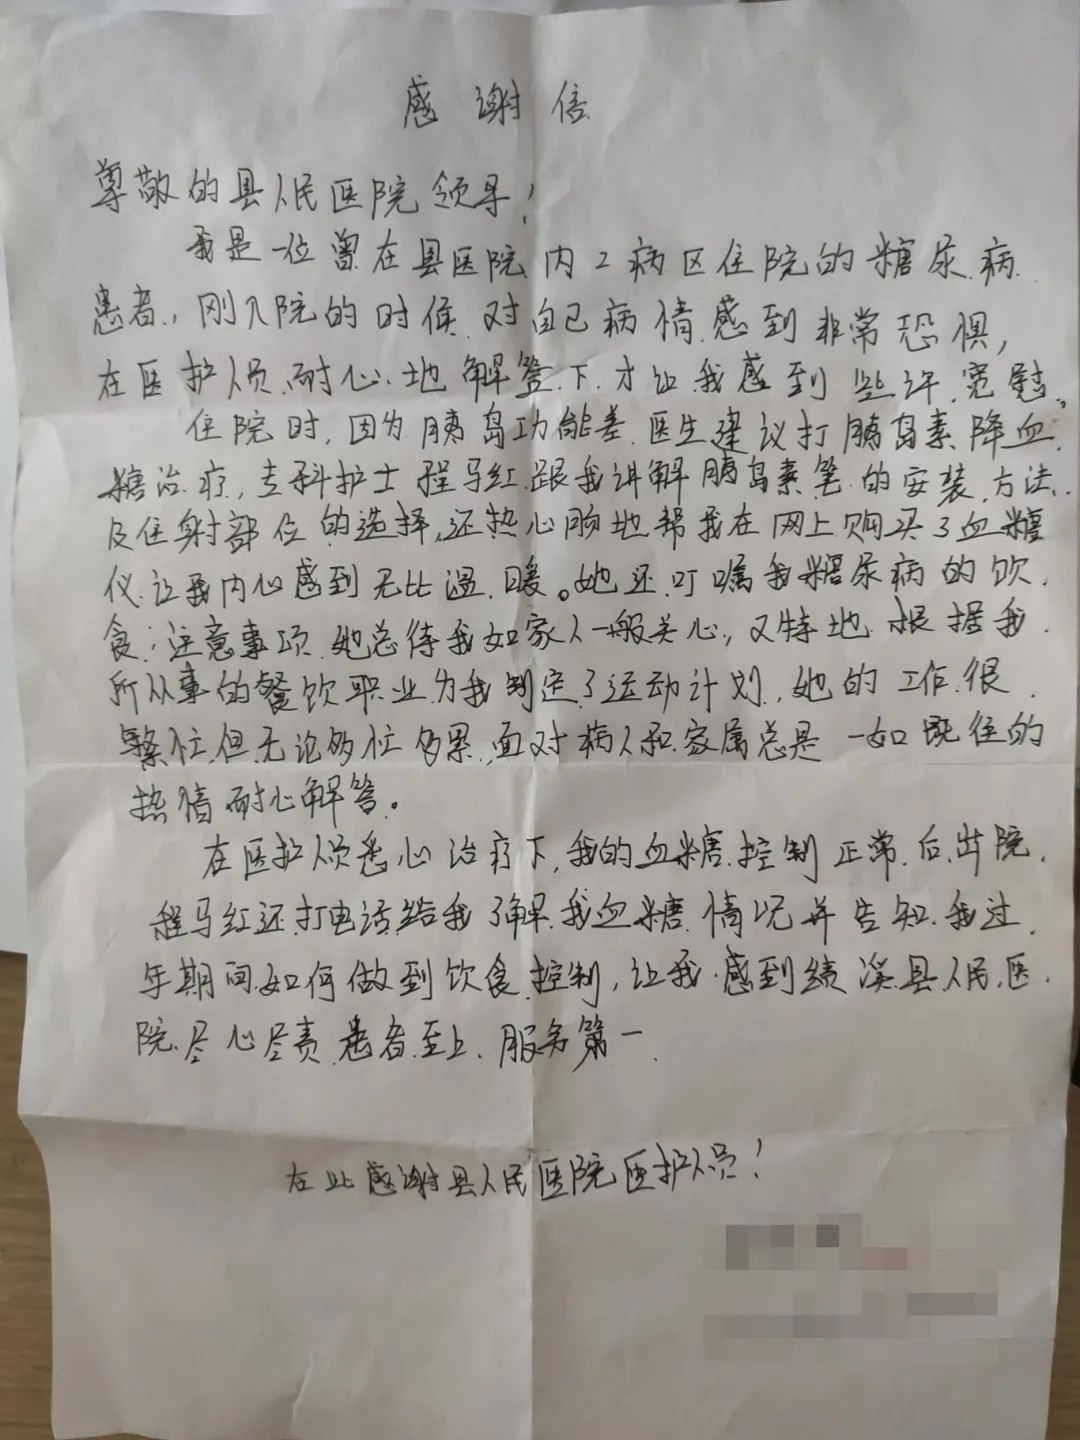 感谢信
尊敬的县人民医院领导！
我是一位曾在县医院内2病区住院的糖尿病
患者，刚入院的时候对自己病情感到非常恐惧，
在医护人员耐心地解答下才让我感到些许宽慰。
住院时，因为胰岛功能差医生建议打胰岛素降血
糖治疗，专科护士程马红跟我讲解胰岛素笔的安装方法
及住射部位的选择，还热心肠地帮我在网上购买了血糖
仪让我内心感到无比温暖。她还叮嘱我糖尿病的饮
食：注意事项她总待我如家人一般关心，又特地根据我
所从事的餐饮职业为我制定了运动计划，她的工作很
繁忙但无论多忙多累，面对病人和家属总是一如既往的
热情耐心解答。
在医护人员悉心治疗下，我的血糖控制正常后出院，
程马红还打电话给我了解我血糖情况并告知我过
年期间如何做到饮食控制，让我感到绩溪县人民医
院尽心尽责患者至上服务第一
在此感谢县人民医院医护人员！